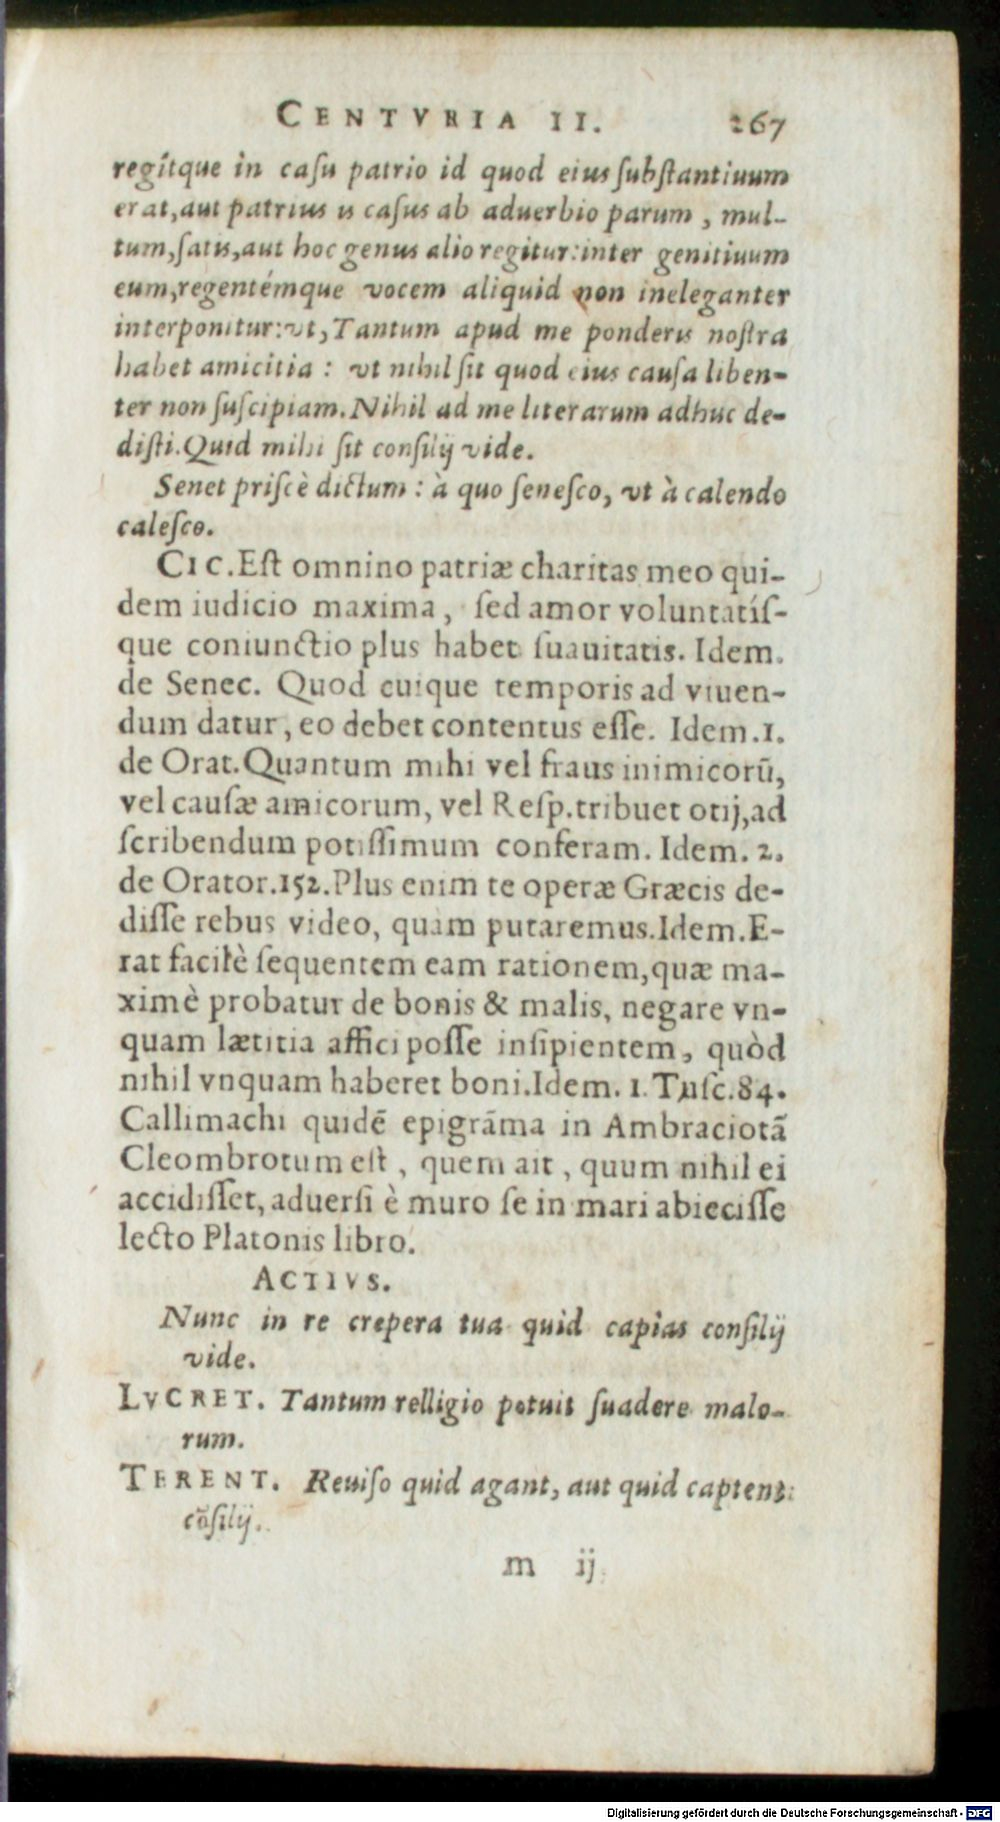 CENTVRIA II. 267
regítque in casu patrio id quod eius substantiuum
erat, aut patrius is casus ab aduerbio parum, mul-
tum, satis, aut hoc genus alio regitur: inter genitiuum
eum, regentémque vocem aliquid non ineleganter
interponitur: vt, Tantum apud me ponderis nostra
habet amicitia : vt nihil sit quod eius causa liben-
ter non suscipiam. Nihil ad me literarum adhuc de-
disti. Quid mihi sit consilij vide.
Senet priscè dictum : à quo senesco, vt à calendo
calesco.
CIC. Est omnino patriæ charitas meo qui-
dem iudicio maxima, sed amor voluntatís-
que coniunctio plus habet suauitatis. Idem.
de Senec. Quod cuique temporis ad viuen-
dum datur, eo debet contentus esse. Idem. 1.
de Orat. Quantum mihi vel fraus inimicorū,
vel causæ amicorum, vel Resp. tribuet otij, ad
scribendum potissimum conferam. Idem. 2.
de Orator. 152. Plus enim te operæ Græcis de-
disse rebus video, quam putaremus. Idem. E-
rat facilè sequentem eam rationem, quæ ma-
ximè probatur de bonis & malis, negare vn-
quam lætitia affici posse insipientem, quòd
nihil vnquam haberet boni. Idem. 1. Tusc. 84.
Callimachi quidē epigrāma in Ambraciotā
Cleombrotum est, quem ait, quum nihil ei
accidisset, aduersi è muro se in mari abiecisse
lecto Platonis libro.
ACTIVS.
Nunc in re crepera tua quid capias consilij
vide.
LVCRET. Tantum relligio potuit suadere malo-
rum.
TERENT. Reuiso quid agant, aut quid captent
cōsilij.
m ij
Digitalisierung gefördert durch die Deutsche Forschungsgemeinschaft - DFG